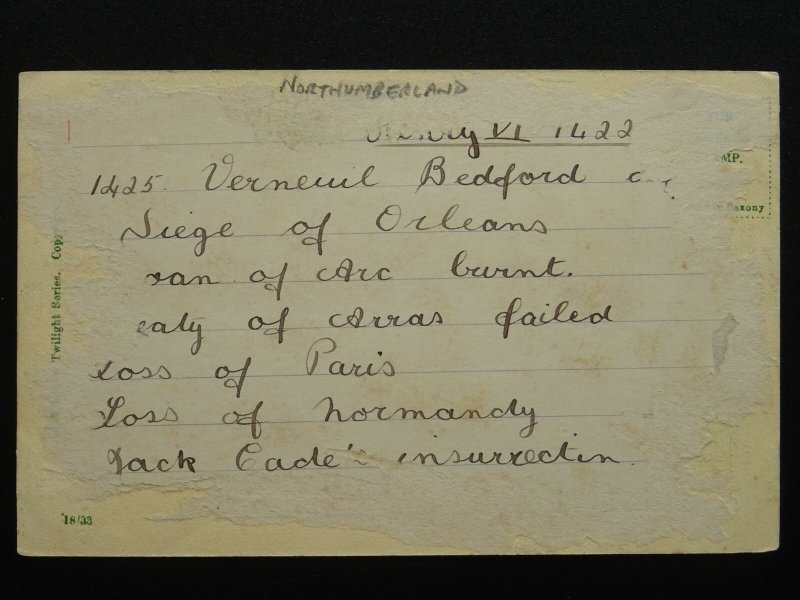 NORTHUMBERLAND
VI 1422
MP.
1425. Verneuil Bedford
Saxony
Siege of Orleans
an of Arc burnt.
eaty of Arras failed
Loss of Paris
Loss of Normandy
Jack Cade' insurrectin.
Twilight Series. Cop
18/33